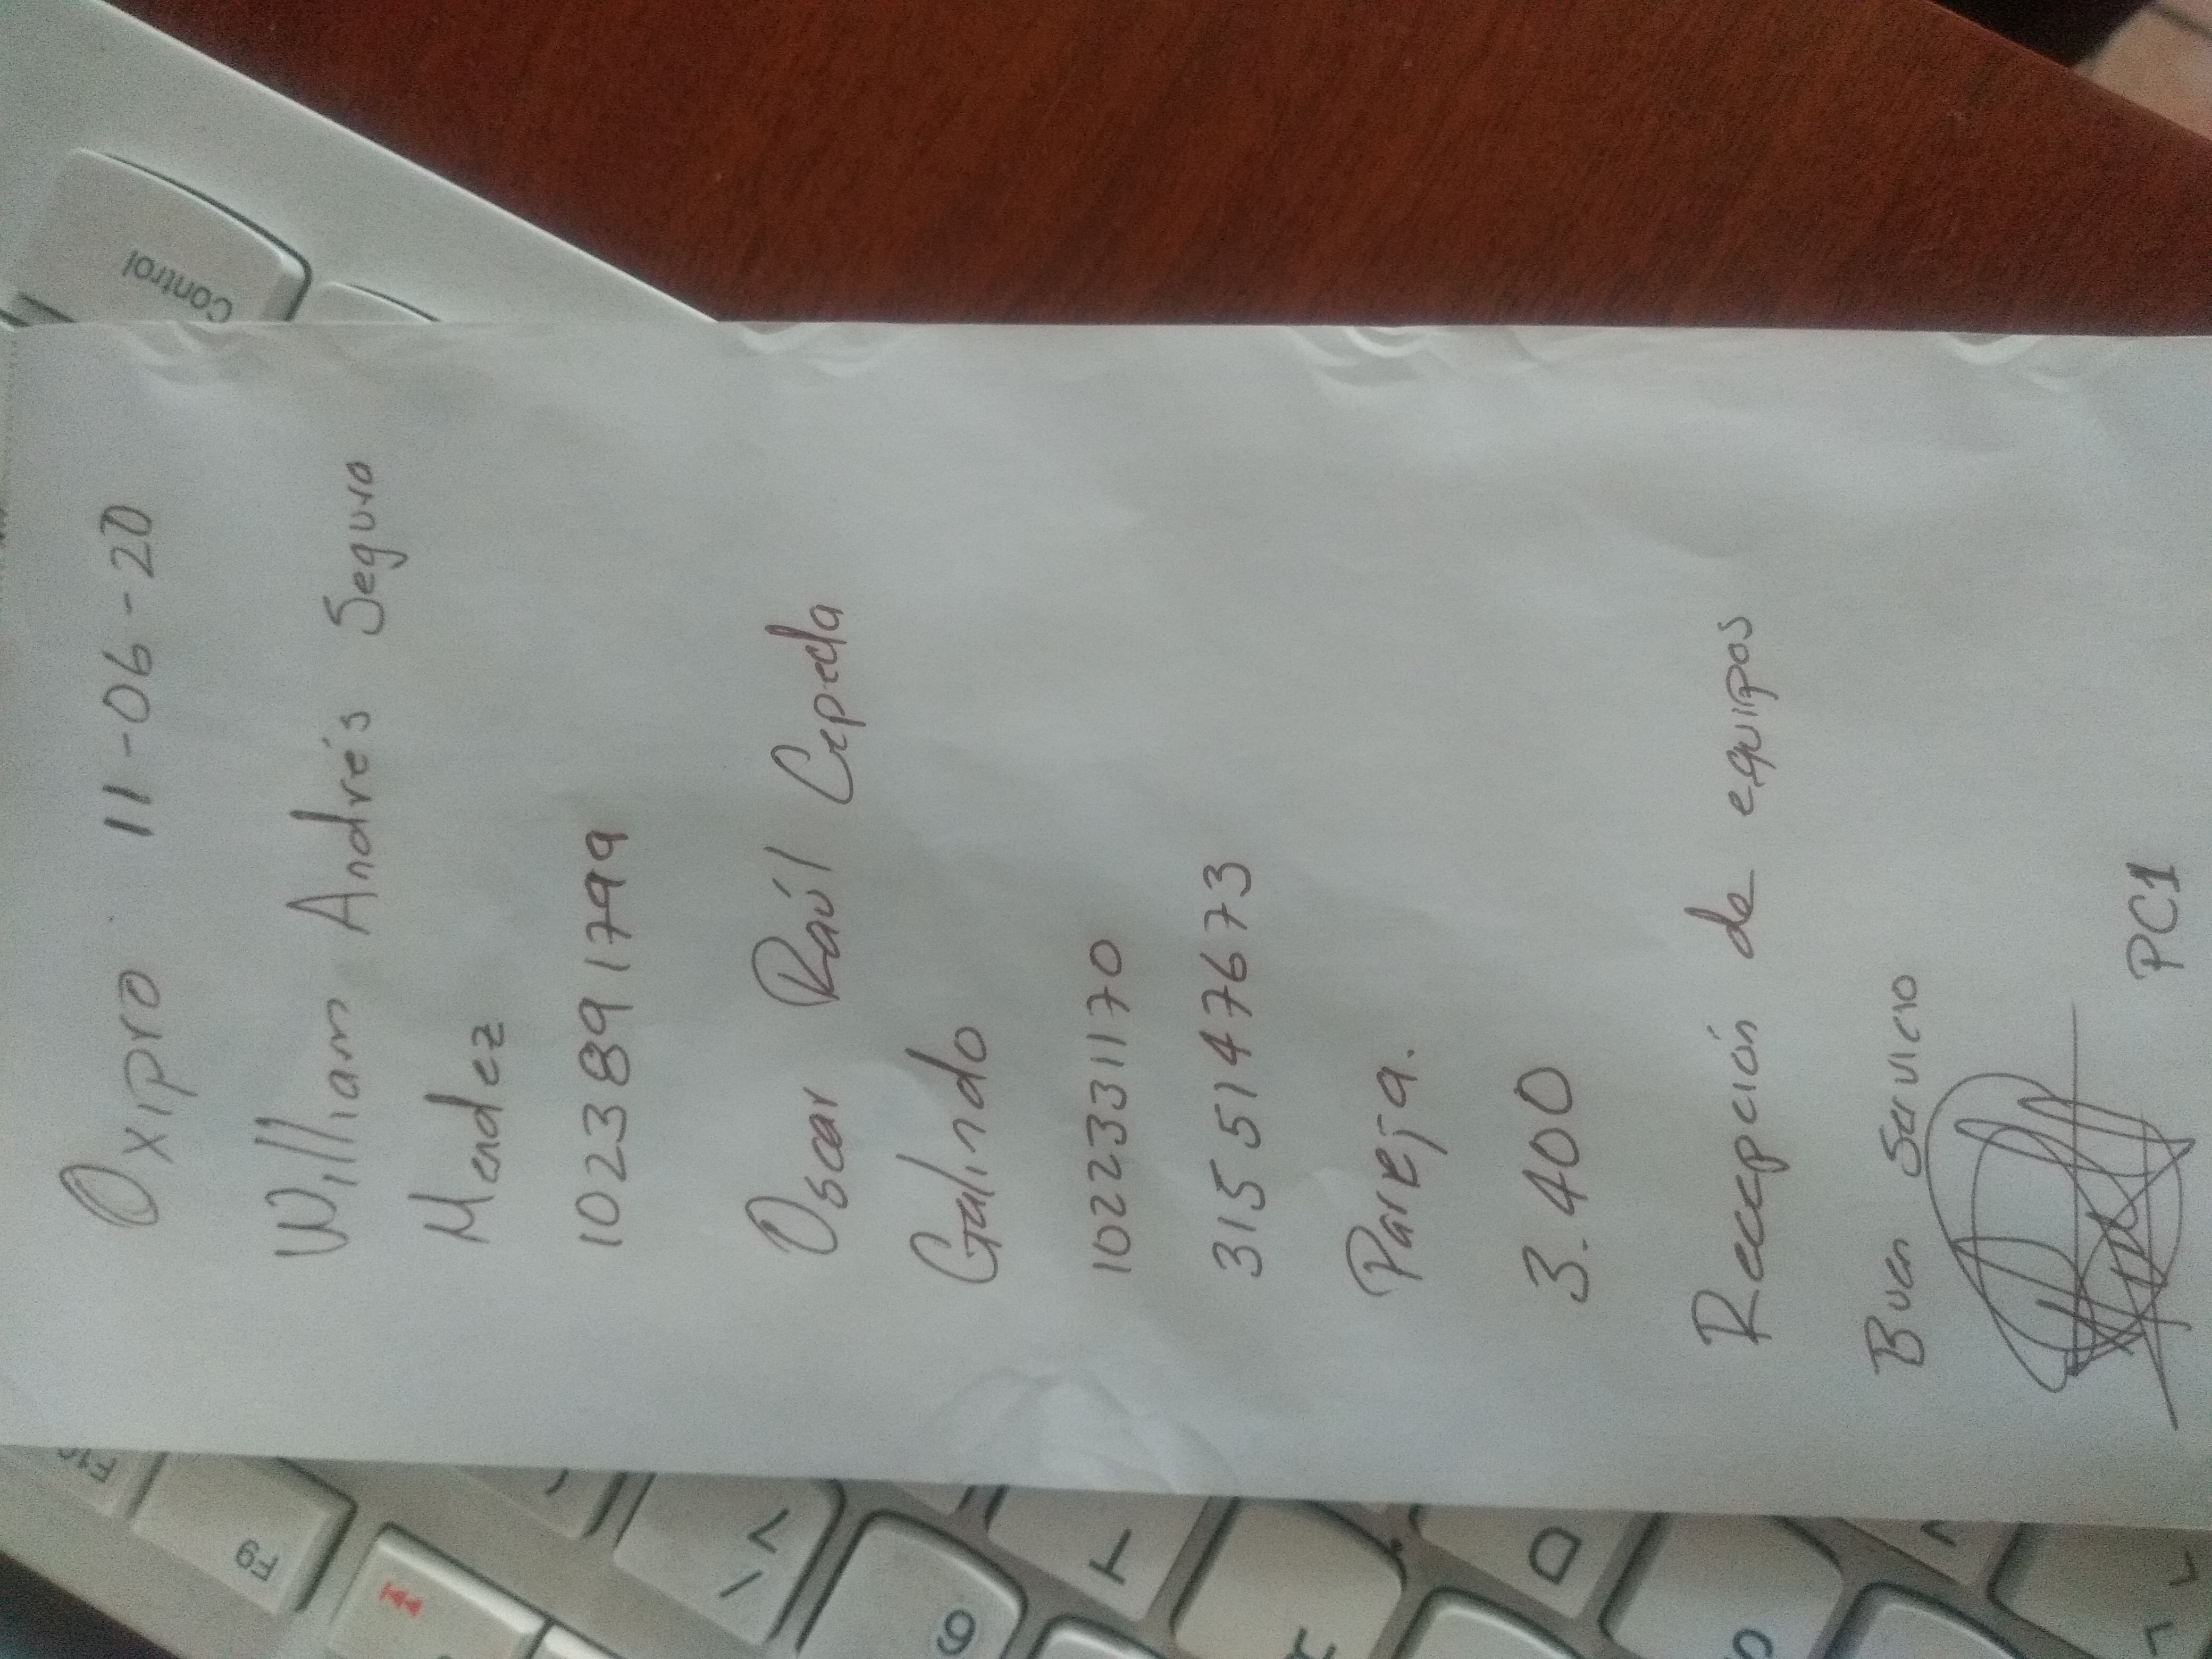 Oxipro 11-06-20
William Andrés Seguro
Mendez
1023891799
Oscar Raúl Cepeda
Galindo
1022331170
3155147673
Pareja.
3.400
Recepción de equipos
Buen Servicio
PC1
Control
F10
F9
/
6
T
D
S